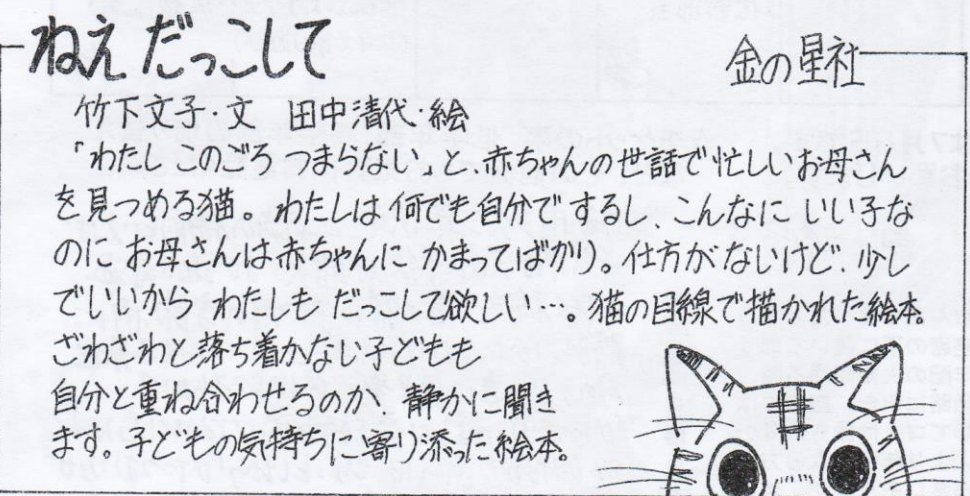 ねえ だっこして
金の星社
竹下文子・文 田中清代・絵
「わたし このごろ つまらない」と、赤ちゃんの世話で忙しいお母さん
を見つめる猫。わたしは何でも自分でするし、こんなに いい子な
のに お母さんは赤ちゃんに かまってばかり。仕方がないけど、少し
でいいから わたしも だっこして欲しい・・。猫の目線で描かれた絵本。
ざわざわと落ち着かない子どもも
自分と重ね合わせるのか、静かに聞き
ます。子どもの気持ちに寄り添った絵本。